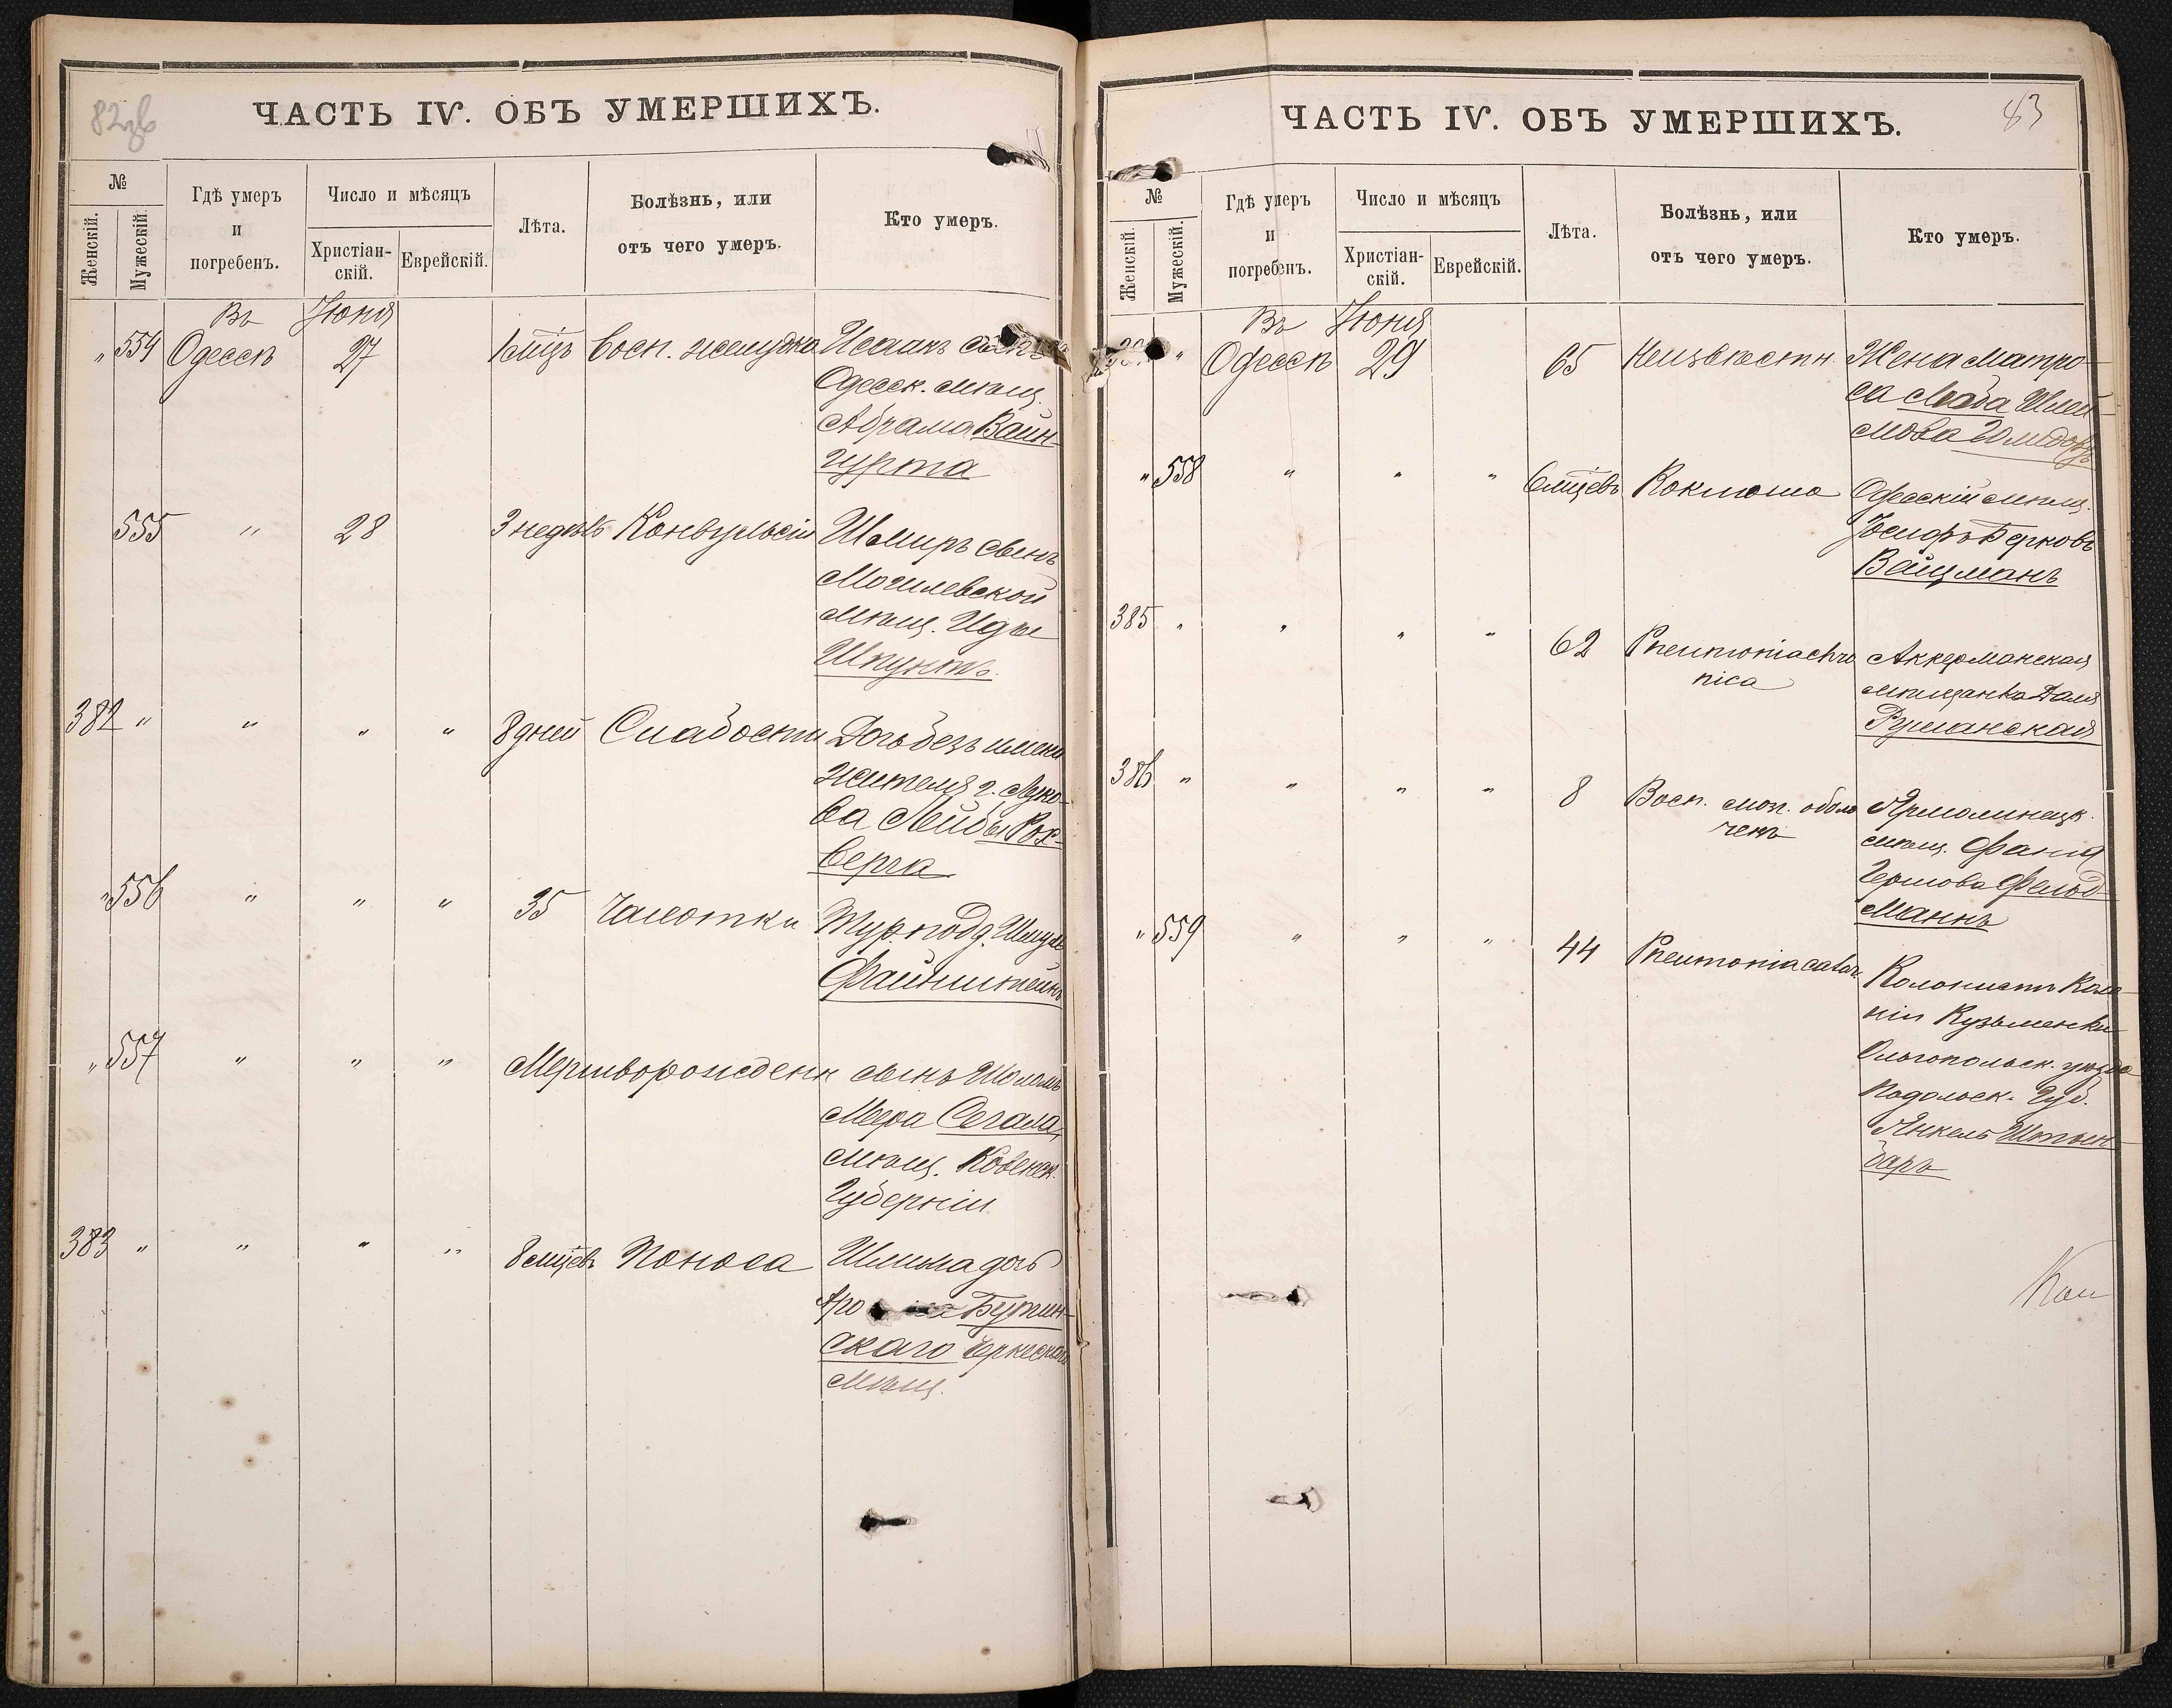 82об
ЧАСТЬ IV. ОБЪ УМЕРШИХЪ.
№
Женскій.
Мужескій.
Гдѣ умеръ
и
погребенъ.
Число и мѣсяцъ
Христіан-
скій.
Еврейскій.
Лѣта.
Болѣзнь, или
отъ чего умеръ.
Кто умеръ.
Въ Іюня
" 554 Одессѣ 27 1 мцъ Восп. желудка Исаакъ сынъ
Одесск. мѣщ.
Абрама Вайн-
гурта
555 " 28 3 недѣль Конвульсіи Шмиръ сынъ
Могилевской
мѣщ. Иды
Шпунтъ.
382 " " " " 8 дней Слабости Дочь безъ имени
жителя г. Луко-
ва Лейбы Рог-
верга
" 556 " " " 35 Чахотки Тур. подд. Шмуль
Файнштейнъ
" 557 " " " Мертворожденн сынъ Шоломъ
Меера Сегала,
мѣщ. Ковенск.
Губерніи
383 " " " " 8 мцевъ Поноса Шлима дочь
Аро Бутин-
скаго Черкесскаго
мѣщ.
83
ЧАСТЬ IV. ОБЪ УМЕРШИХЪ.
№
Женскій.
Мужескій.
Гдѣ умеръ
и
погребенъ.
Число и мѣсяцъ
Христіан-
скій.
Еврейскій.
Лѣта.
Болѣзнь, или
отъ чего умеръ.
Кто умеръ.
Въ Іюня
" Одессѣ 29 65 Неизвѣстн. Жена матро-
са Шлей-
мова
" 558 " " " 6 мцевъ Коклюша Одесскій мѣщ.
Іосифъ Берковъ
Вайцманъ
385 " " " " 62 Pneumonia chro
nica Аккерманская
мѣщанка
386 " " " " 8 Восп. мозг. оболо
чекъ Ярмолинецк.
мѣщ. Фаня
Гершова Фельд-
манъ
" 559 " " " 44 Pneumonia catar. Колонистъ Коло-
ніи Кузьменки
Ольгопольск. уѣзда
Подольск. Губ.
Янкель Штын-
баръ
Каз